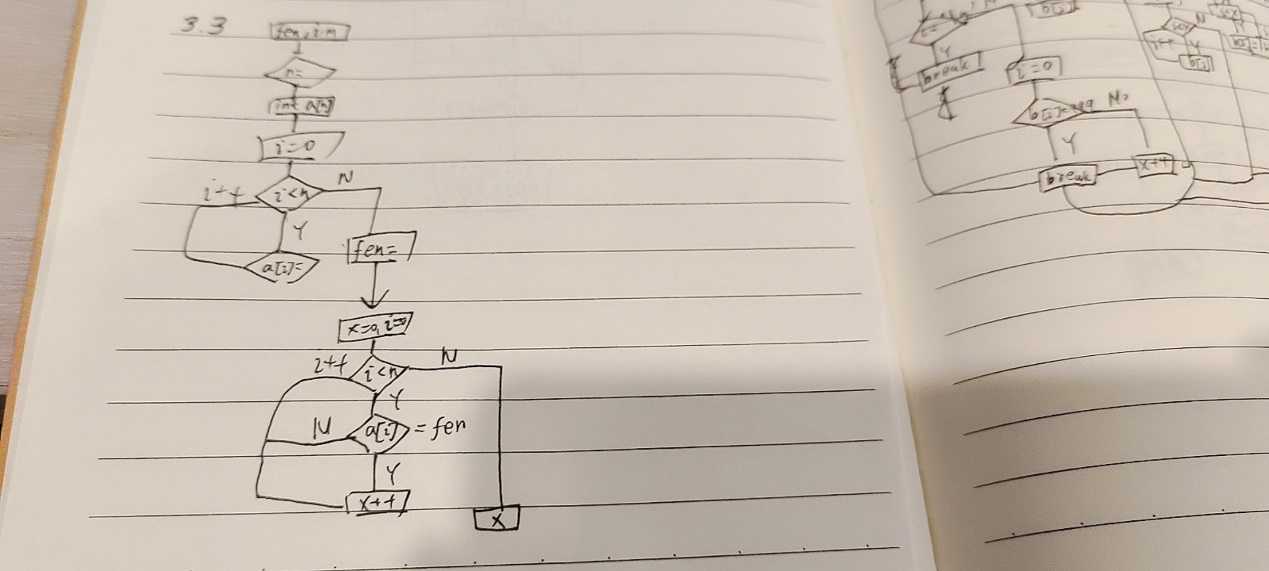 3.3
fen, i.n
n=
int a[n]
i=0
i++
i<n
N
Y
a[i]=
fen=
x=0, i=0
i++
i<n
N
Y
N
a[i]
= fen
Y
x++
x
i=
Y
break
i=0
No
Y
break
x++
N
Y
i++
b[i]